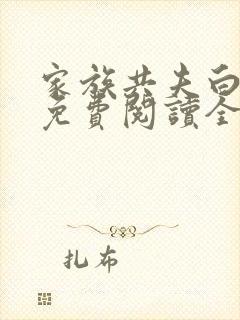 家族共夫白
免費閱讀全
扎布